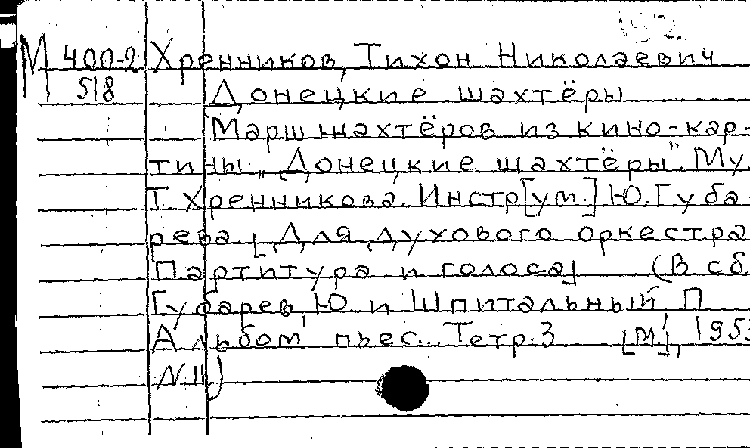 М 400-2 Хренников, Тихон Николаевич
518 Донецкие шахтёры
Марш шахтёров из кино-кар-
тины „Донецкие шахтёры". Му
Т. Хренникова. Инстр[ум.] Ю. Губа-
рева [Для духового оркестра
Партитура и голоса] (В сб
Губарев, Ю и Шпитальный, П
Альбом пьес. Тетр. 3 [М], 1953
N 11)